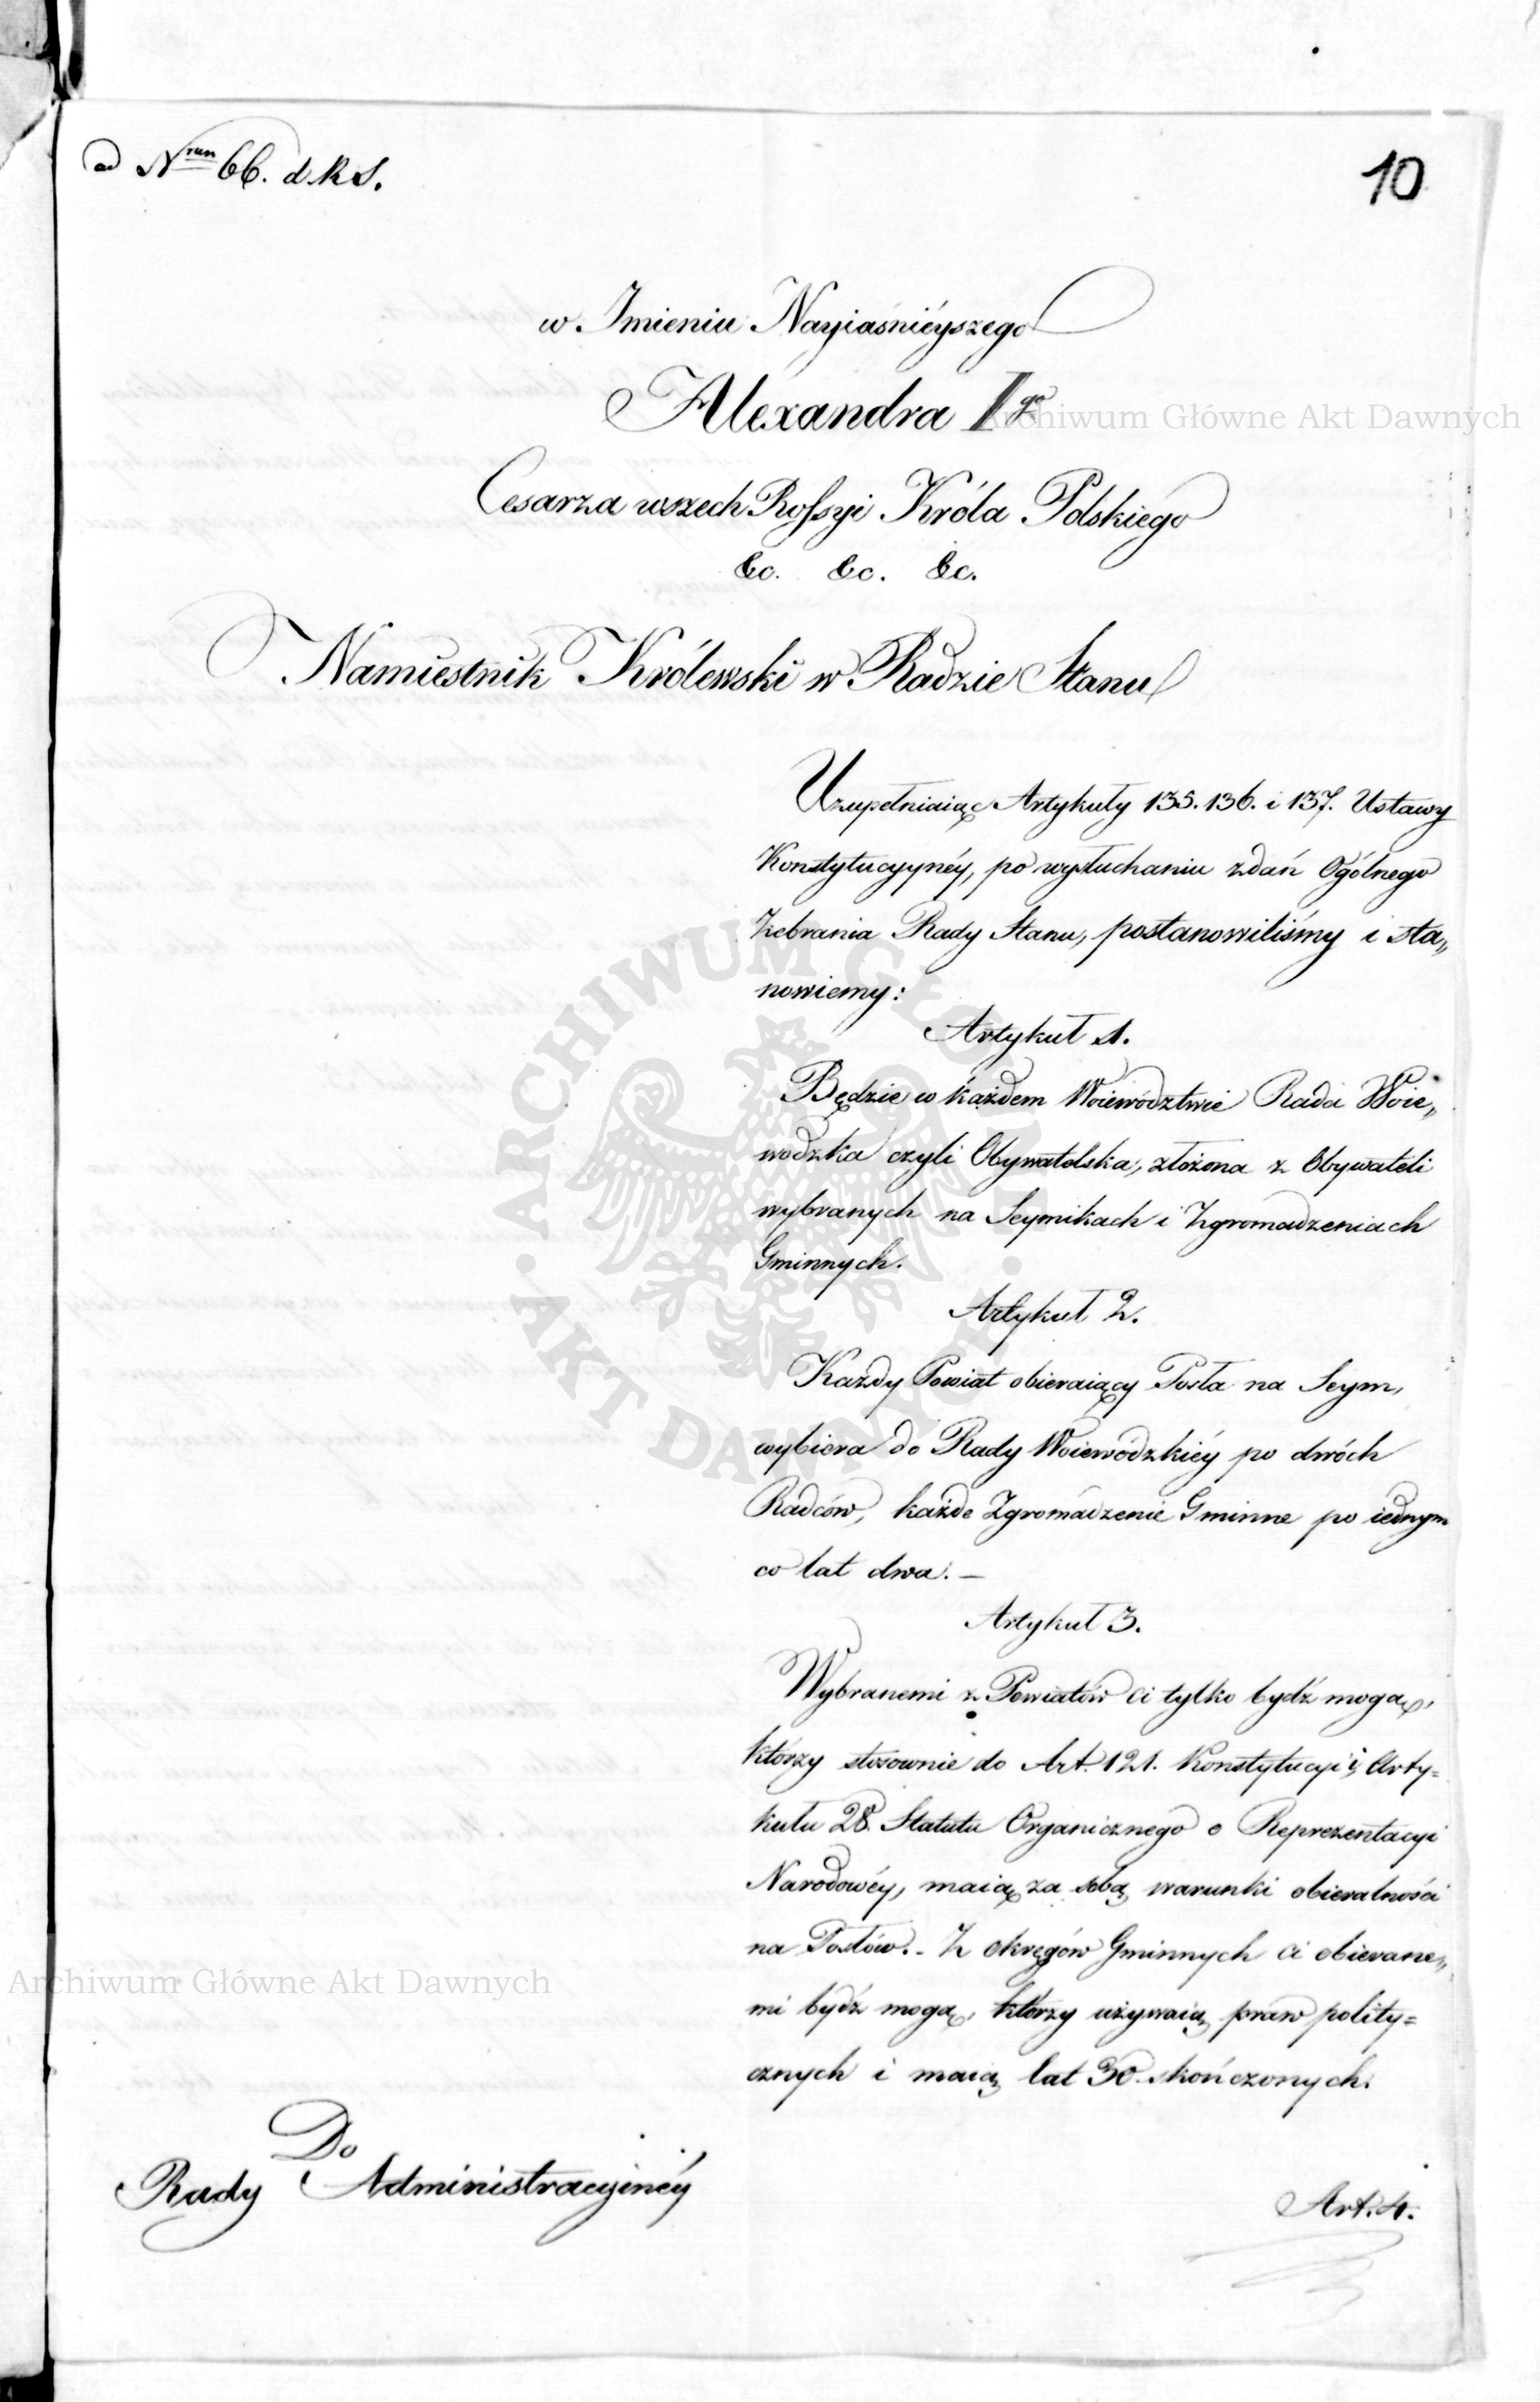 ad N<sup>rum</sup> 66. d.k.s.
10
w Imieniu Nayiaśnieyszego
Alexandra I<sup>go</sup>
Archiwum Główne Akt Dawnych
Cesarza wszech Rossyi Króla Polskiego
&c. &c. &c.
Namiestnik Królewski w Radzie Stanu
Uzupełniaiąc Artykuły 135. 136. i 137. Ustawy
Konstytucyynéy, po wysłuchaniu zdań Ogólnego
Zebrania Rady Stanu, postanowiliśmy i sta„
nowiemy:
Artykuł 1.
Będzie w każdem Woiewództwie Rada Woie„
wodzka czyli Obywatelska, złożona z Obywateli
wybranych na Seymikach i Zgromadzeniach
Gminnych.
Artykuł 2.
Każdy Powiat obieraiący Posła na Seym,
wybiera do Rady Woiewódzkiéy po dwóch
Radców, każde Zgromadzenie Gminne po iednym
co lat dwa. —
Artykuł 3.
Wybranemi z Powiatów ci tylko bydź mogą,
którzy stosownie do Art. 121. Konstytucyi i Arty=
kułu 28. Statutu Organicznego o Reprezentacyi
Narodowéy, maią za sobą warunki obieralności
na Posłów. - Z okręgów Gminnych ci obierane„
Archiwum Główne Akt Dawnych
mi bydź mogą, którzy używaią praw polity=
cznych i maią lat 30. skończonych.
Do
Rady Administracyinéy
Art. 4.
ARCHIWUM GŁÓWNE
AKT DAWNYCH